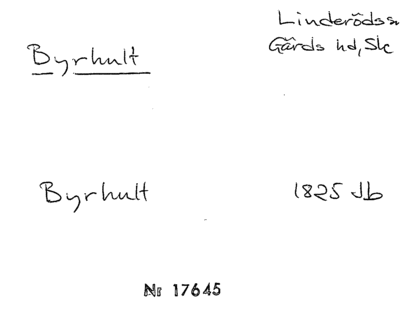 Byrhult
Linderöds sn
Gärds hd, Sk
Byrhult
1825 Jb
Nr 17645